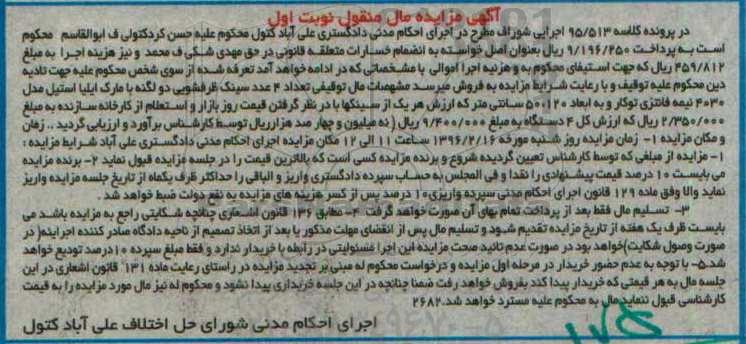 آگهی مزایده مال منقول نوبت اول
در پرونده کلاسه 95/513 اجرایی شورای مطرح در اجرای احکام مدنی دادگستری علی آباد کتول محکوم علیه حسن کردکتولی ف ابوالقاسم محکوم
است به پرداخت 9/196/250 ریال بعنوان اصل خواسته به انضمام خسارات متعلقه قانونی در حق مهدی شکی ف محمد و نیز هزینه اجرا به مبلغ
459/812 ریال که جهت استیفای محکوم به و هزینه اجرا اموالی با مشخصاتی که در ادامه خواهد آمد تعرفه شده از سوی شخص محکوم علیه جهت تادیه
دین محکوم علیه توقیف و با رعایت شرایط مزایده به فروش میرسد مشخصات مال توقیفی تعداد 4 عدد سینک ظرفشویی دو لگنه با مارک ایلیا استیل مدل
4030 نیمه فانتزی توکار و به ابعاد 120*50 سانتی متر که ارزش هر یک از سینکها با در نظر گرفتن قیمت روز بازار و استعلام از کارخانه سازنده به مبلغ
2/350/000 ریال که ارزش کل 4 دستگاه به مبلغ 9/400/000 ریال ( نه میلیون و چهار صد هزارریال توسط کارشناس برآورد و ارزیابی گردید .. زمان
و مکان مزایده 1- زمان مزایده روز شنبه مورخه 1396/2/16 ساعت 11 الی 12 مکان مزایده اجرای احکام مدنی دادگستری علی آباد شرایط مزایده :
1- مزایده از مبلغی که توسط کارشناس تعیین گردیده شروع و برنده مزایده کسی است که بالاترین قیمت را در جلسه مزایده قبول نماید 2- برنده مزایده
می بایست 10 درصد قیمت پیشنهادی را نقدا و فی المجلس به حساب سپرده دادگستری واریز و الباقی را حداکثر ظرف یکماه از تاریخ جلسه مزایده واریز
نماید والا وفق ماده 129 قانون اجرای احکام مدنی سپرده واریزی 10 درصد پس از کسر هزینه های مزایده به نفع دولت ضبط خواهد شد .
3- تسلیم مال فقط بعد از پرداخت تمام بهای آن صورت خواهد گرفت 4- مطابق 136 قانون اشعاری چنانچه شکایتی راجع به مزایده باشد می
بایست ظرف یک هفته از تاریخ مزایده تقدیم شود و تسلیم مال پس از انقضای مهلت مذکور یا بعد از اتخاذ تصمیم از ناحیه دادگاه صادر کننده اجرائیه( در
صورت وصول شکایت)خواهد بود در صورت عدم تائید صحت مزایده این اجرا مسئولیتی در رابطه با خریدار ندارد و فقط مبلغ سپرده 10 درصد تودیع خواهد
شد.5- با توجه به عدم حضور خریدار در مرحله اول مزایده و درخواست محکوم له مبنی بر تجدید مزایده در راستای رعایت ماده 131 قانون اشعاری در این
جلسه مال به هر قیمتی که خریدار پیدا کند بفروش خواهد رفت ضمنا چنانچه در این جلسه خریداری پیدا نشود و محکوم له نیز مال مورد مزایده را به قیمت
کارشناسی قبول ننماید مال به محکوم علیه مسترد خواهد شد.2682
اجرای احکام مدنی شورای حل اختلاف علی آباد کتول